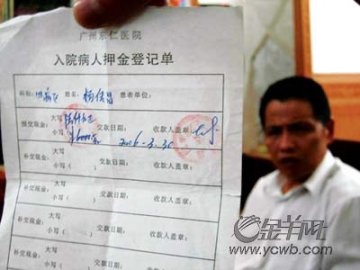 广州东仁医院
入院病人押金登记单
科别: 姓名: 杨 患者单位:
预交现金: 大写 交款日期: 收款人盖章:
小写 ( ¥6000 ) 2006.3.30
补交现金: 大写 交款日期: 收款人盖章:
小写 ( )
补交现金: 大写 交款日期: 收款人盖章:
小写 ( )
补交现金: 大写 交款日期: 收款人盖章:
小写 ( )
补交现金: 大写 交款日期: 收款人盖章:
金羊网
www.ycwb.com